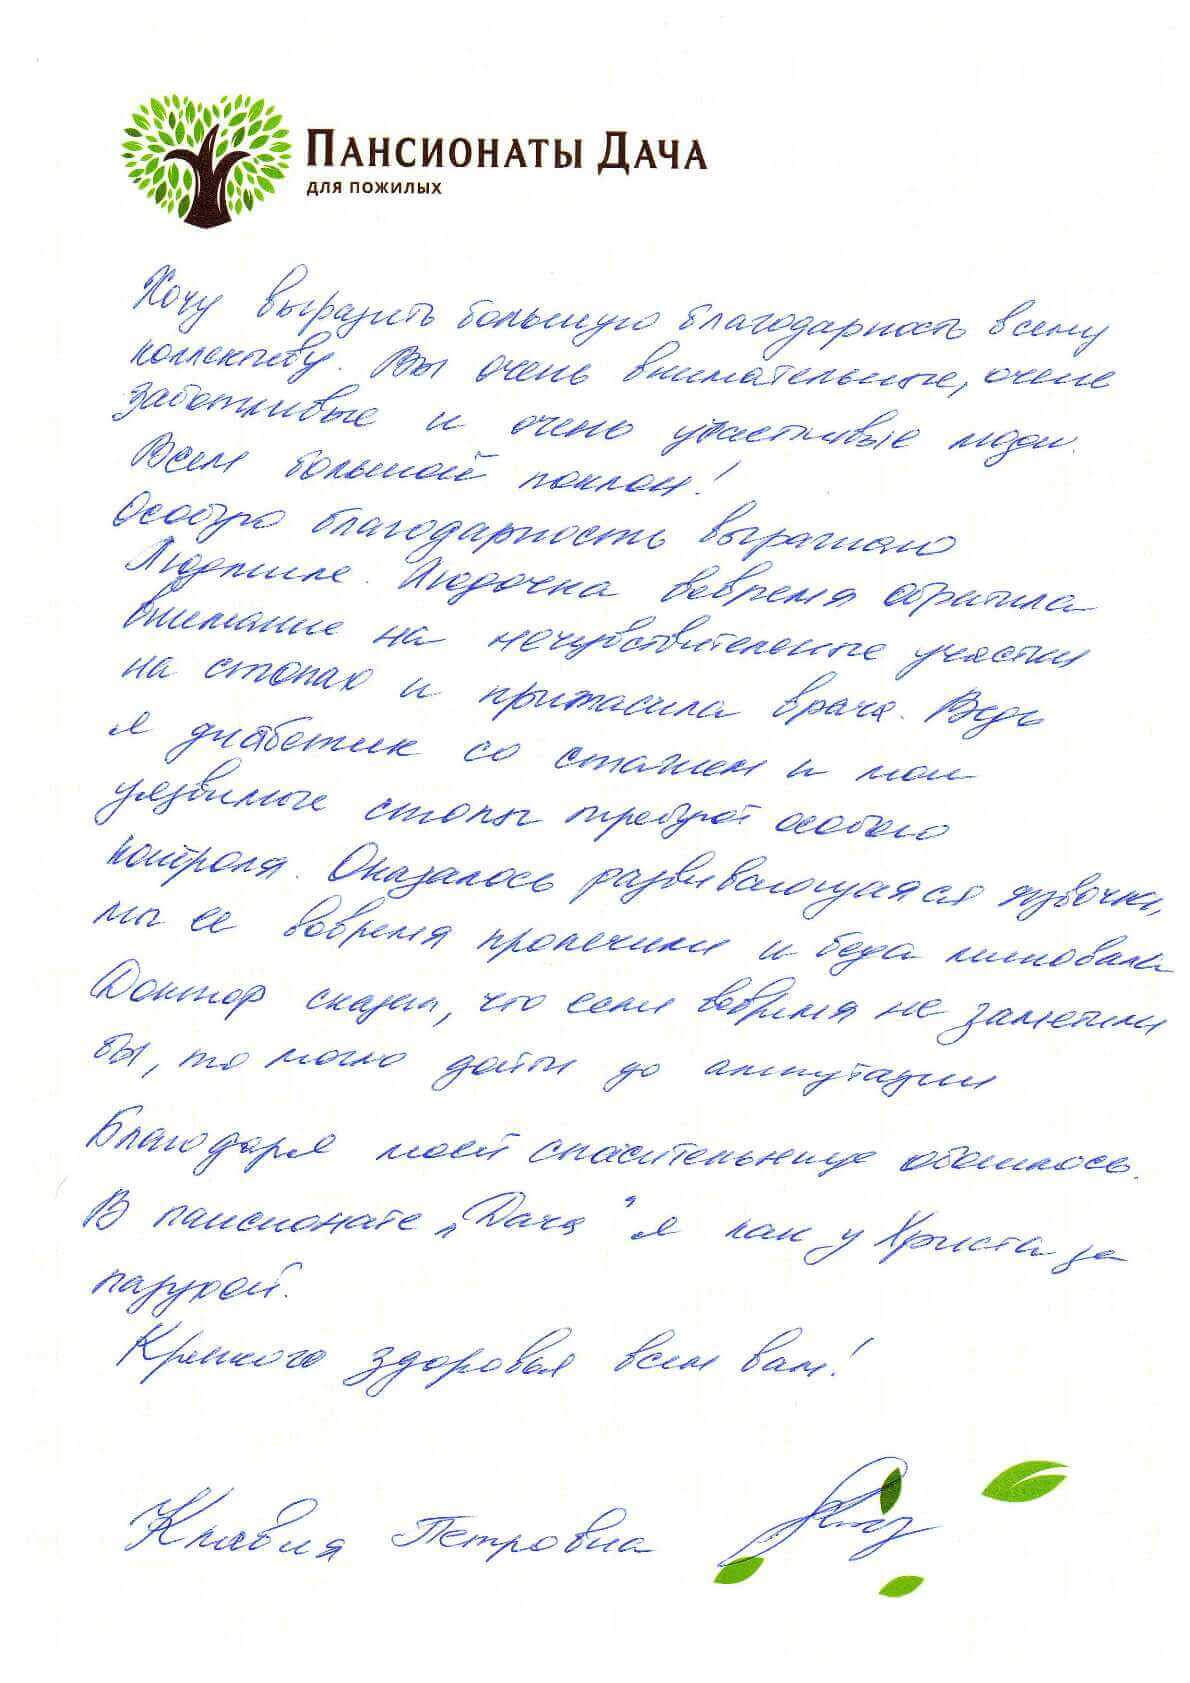 ПАНСИОНАТЫ ДАЧА
ДЛЯ ПОЖИЛЫХ
Хочу выразить большую благодарность всему
коллективу. Вы очень внимательные, очень
заботливые и очень участливые люди.
Всем большой поклон!
Особую благодарность выражаю
Людмиле. Людочка вовремя обратила
внимание на нечувствительные участки
на стопах и пригласила врача. Ведь
я диабетик со стажем и мои
уязвимые стопы требуют особого
контроля. Оказалось развивающаяся язвочка,
мы ее вовремя пролечили и беда миновала
Доктор сказал, что если вовремя не заметили
бы, то могло дойти до ампутации
Благодаря моей спасительнице обошлось.
В пансионате „Дача" я как у Христа за
пазухой.
Крепкого здоровья всем вам!
Клавдия Петровна